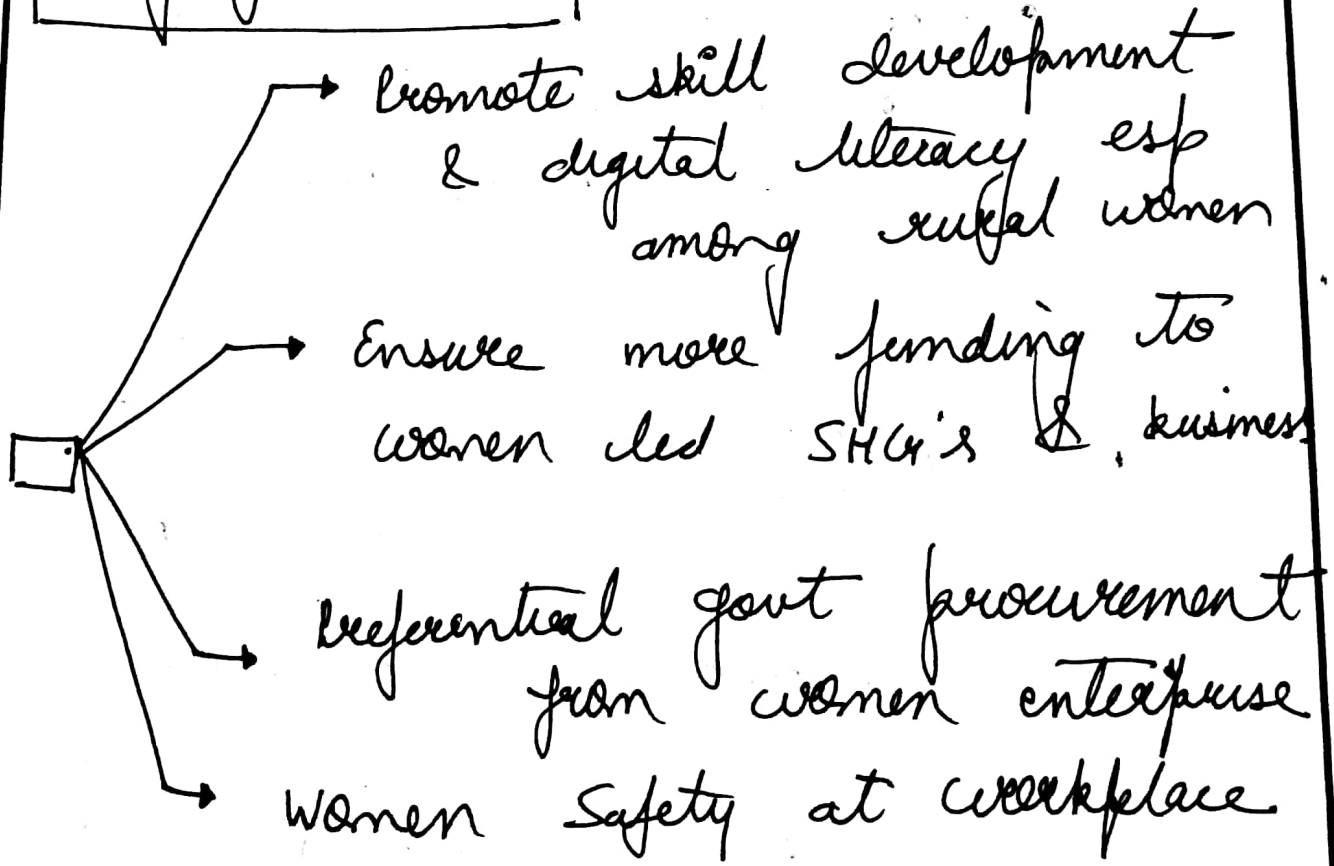 Promote skill development
& digital literacy esp
among rural women
Ensure more funding to
women led SHG's & business
Preferential govt procurement
from women enterprise
Women Safety at workplace